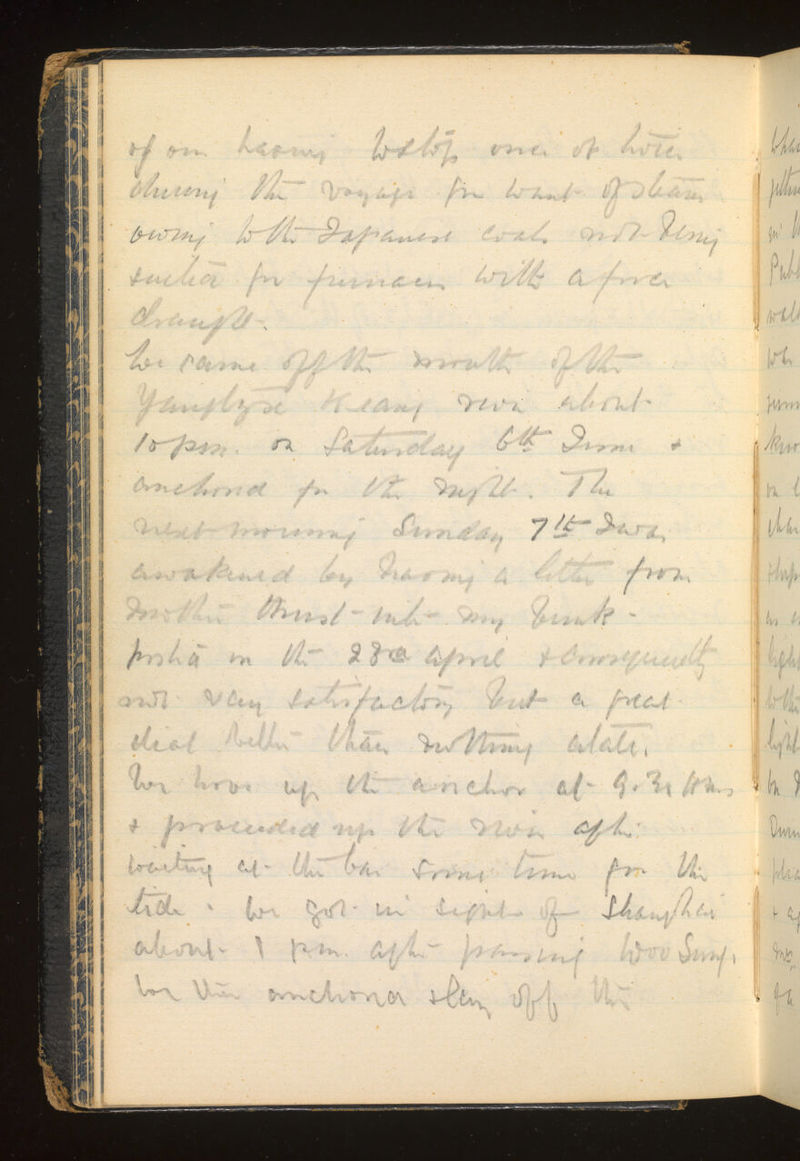 of our having to stop once or twice
during the voyage for want of steam
owing to the Japanese coals not being
suited for furnaces with a forced
draught.
We came off the mouth of the
Yangtze Keang river about
10 pm. on Saturday 6th June &
anchored for the night. The
next morning Sunday 7th I was
awakened by having a letter from
mother thrust into my bunk -
posted on the 23rd April & consequently
not very satisfactory but a great
deal better than nothing at all.
We hove up the anchor at 9.30
& proceeded up the river after
waiting at the bar some time for the
tide. We got in sight of Shanghai
about 1 pm. after passing Woo Sung.
We then anchored & lay off the